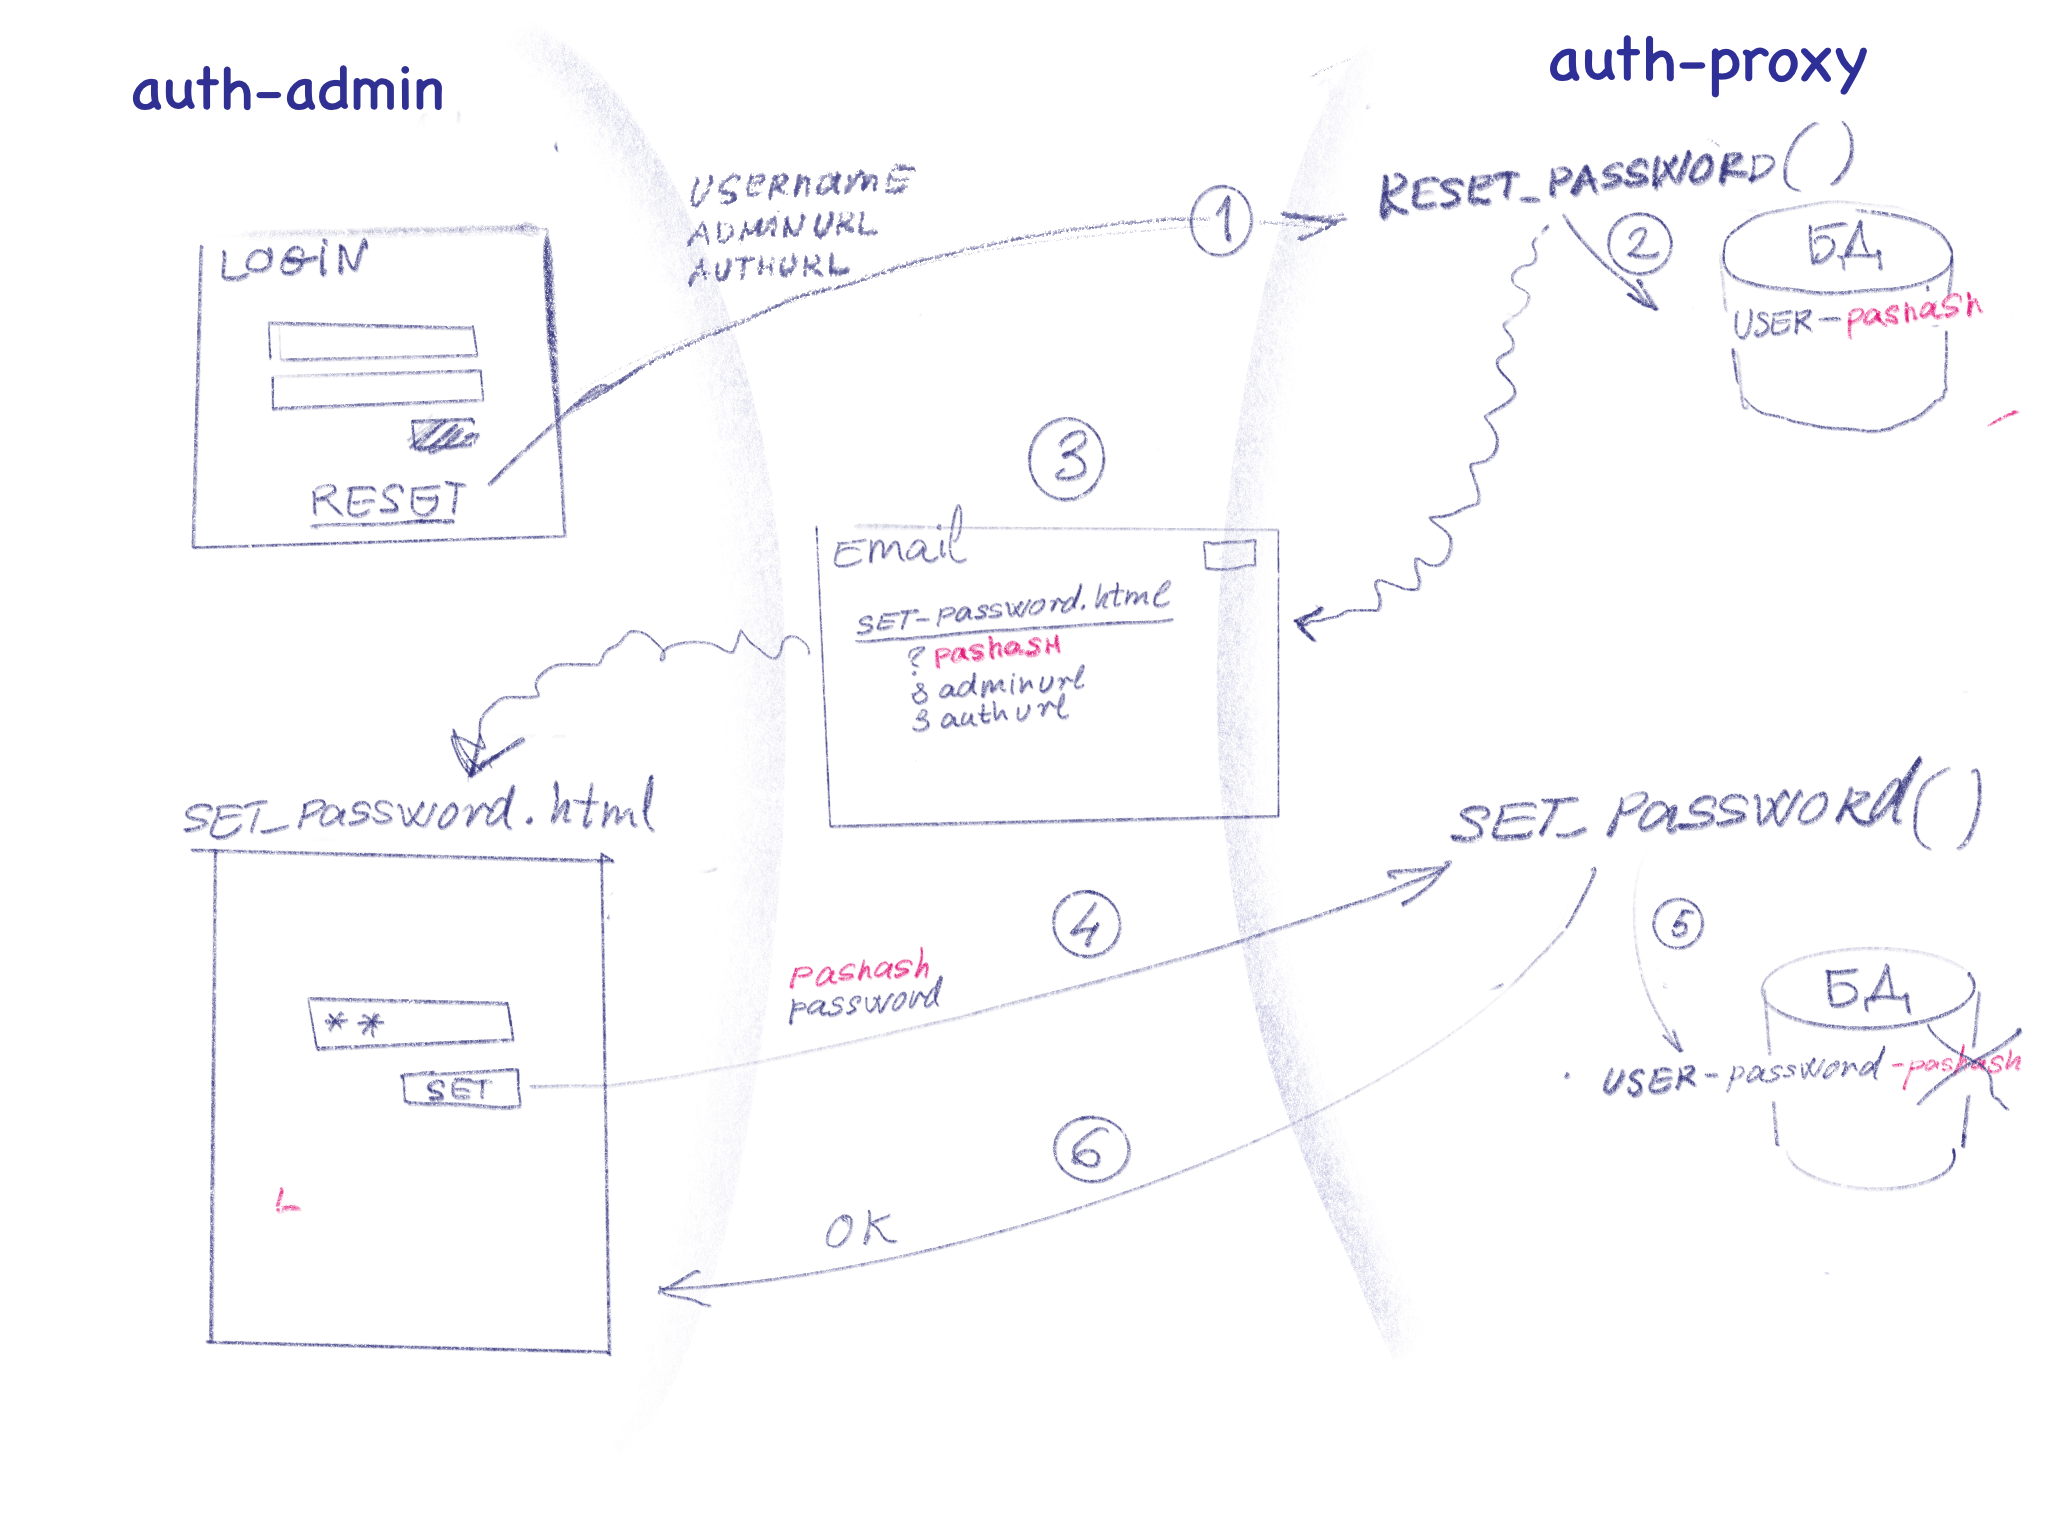 auth-admin
auth-proxy
LOGIN
RESET
USERNAME
ADMINURL
AUTHURL
1
RESET_PASSWORD()
2
БД
USER-pashash
3
Email
SET-password.html
? pashash
& adminurl
& authurl
SET_Password.html
**
SET
4
pashash
password
SET_PASSWORD()
5
БД
USER-password-pashash
6
OK